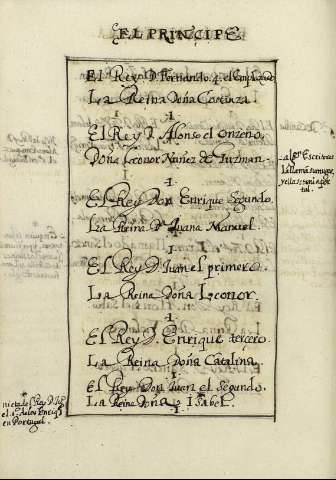 EL PRINCIPE
El Rey D. Fernando 4. el Emplaçado
La Reina Doña Costanza.
1
El Rey D. Alonso el onzeno,
Doña Leonor Nuñez de Guzman.
1
El Rey Don Enrique Segundo.
La Reina Dª Juana Manuel.
1
El Rey D. Juan el primero.
La Reina Doña Leonor.
1
El Rey D. Enrique tercero.
La Reina Doña Catalina.
1
El Rey Don Juan el Segundo.
La Reina Doña Isabel.
1
Escritores
la llama su muger,
y ella se
tal.
nieta del Rey D. Ju
el 1º de los
en Portugal.